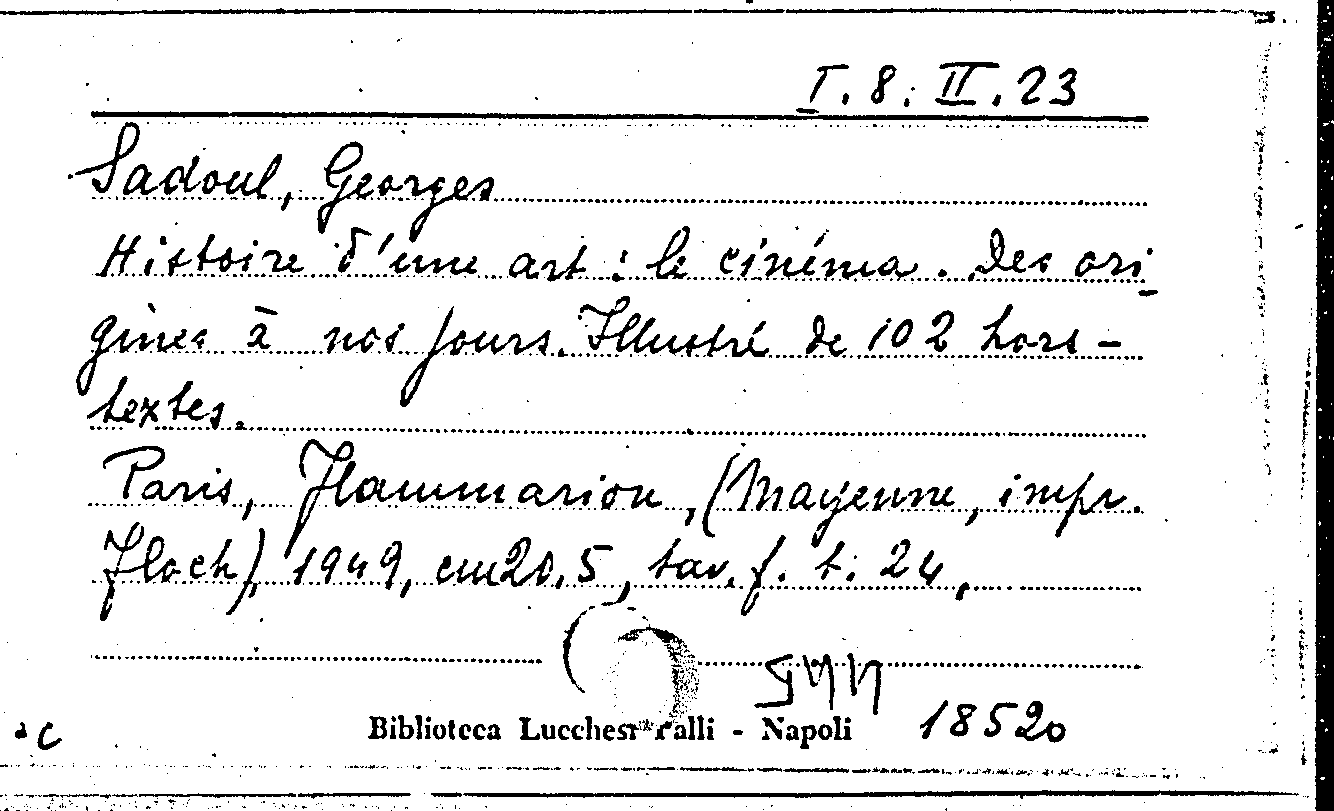 I. 8. II. 23
Sadoul, Georges
Histoire d'une art : le cinéma. Des ori
gines à nos jours. Illustré de 102 hors-
textes.
Paris, Flammarion, (Mayenne, impr.
Floch), 1949, cm 20,5, tav. f. t. 24,
Biblioteca Lucchesi Palli - Napoli 18520